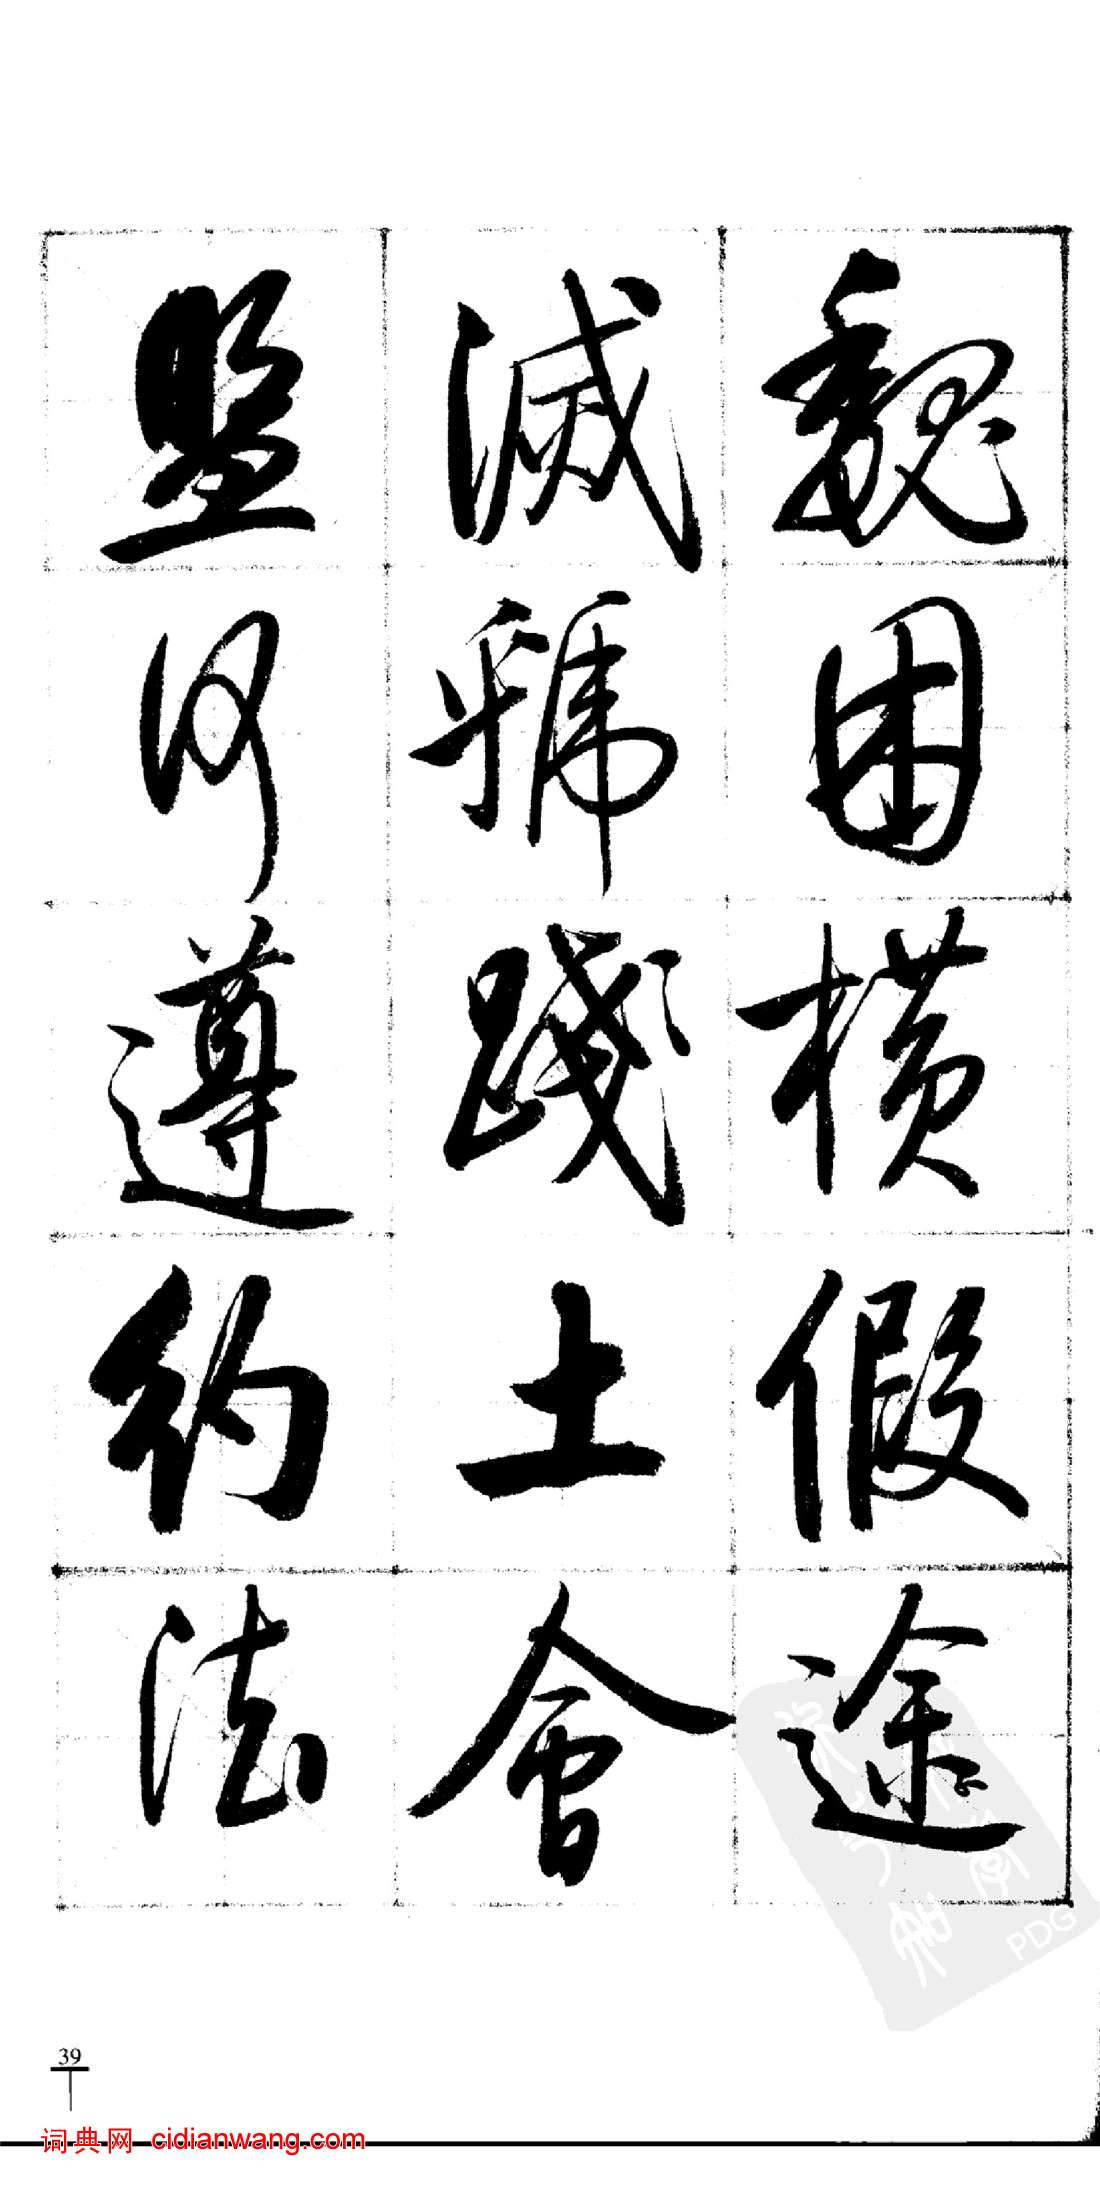 魏困横假途
滅虢踐土會
盟何遵約法
39
词典网 cidianwang.com
PDG